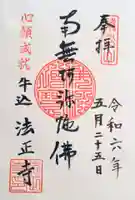 奉拝
令和六年
五月二十五日
南無阿弥陀佛
心願成就
牛込 法正寺